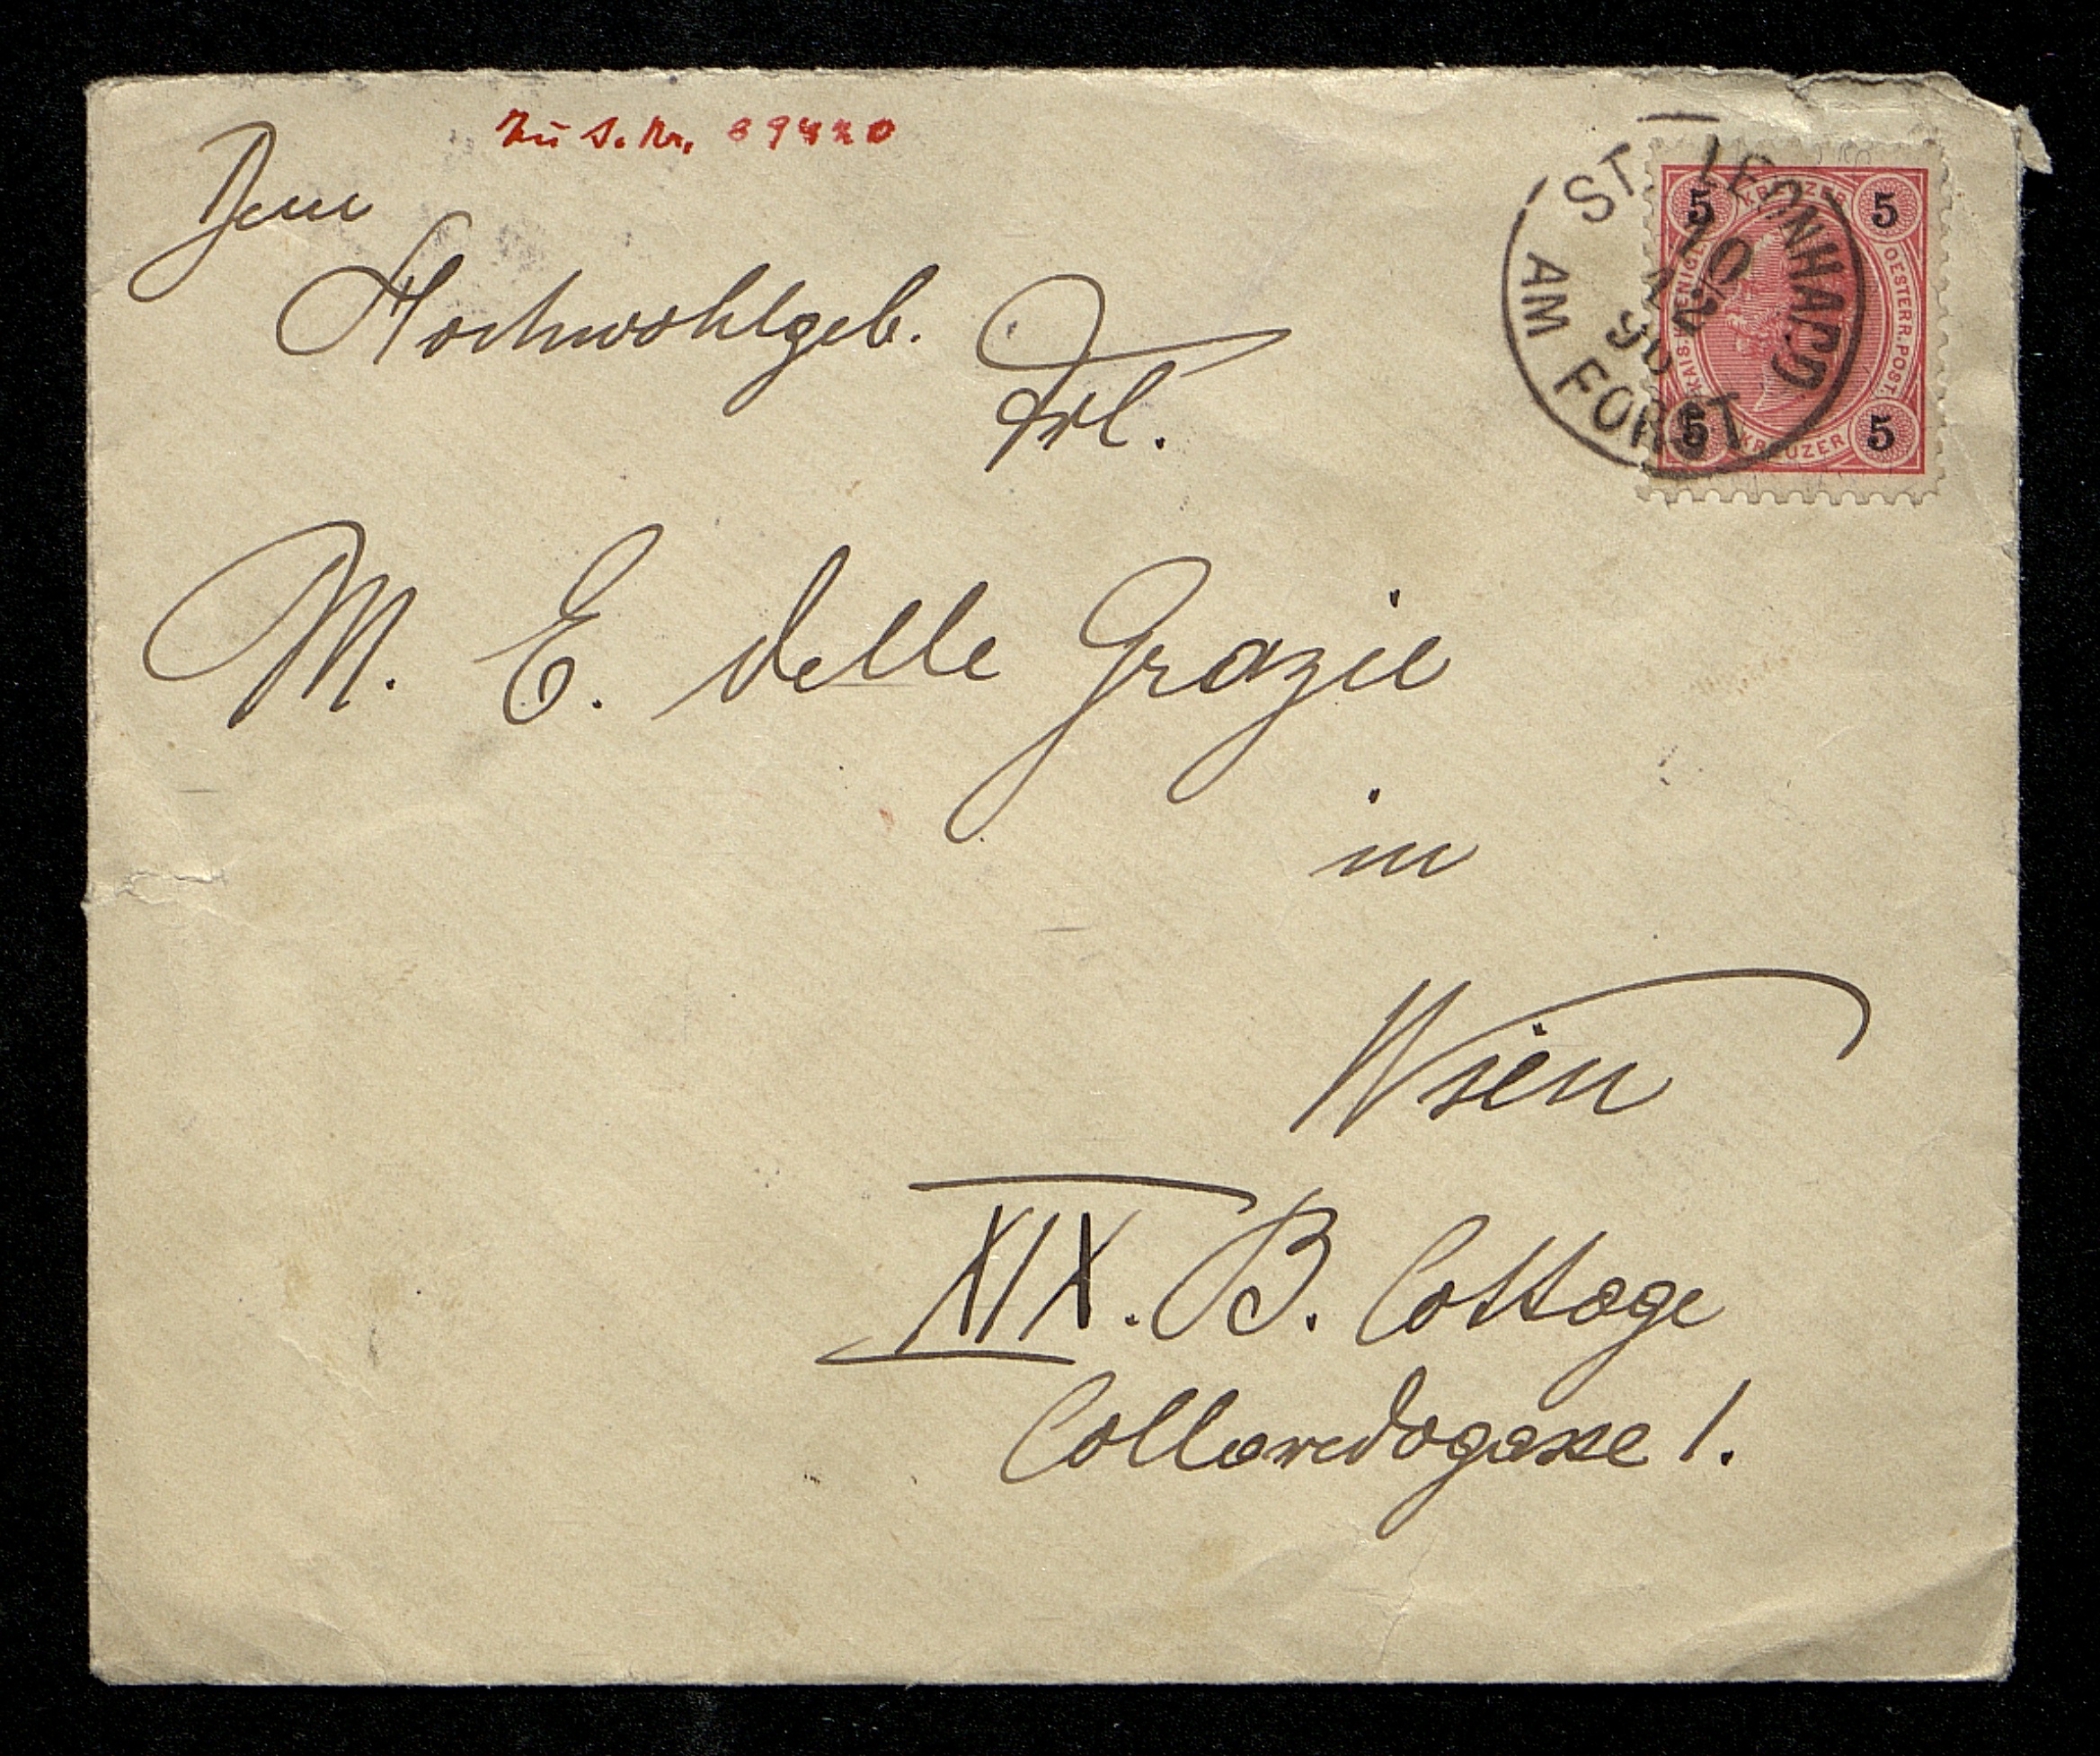 Zu I. Nr. 69420
Dem
Hochwohlgeb.
Frl.
M. E. delle Grazie
in
Wien
XIX. B. Cottage
Colloredogasse 1.
ST. LEONHARD
AM FORST
5 KREUZER 5
KAIS. KOENIGL.
OESTERR. POST.
5 KREUZER 5